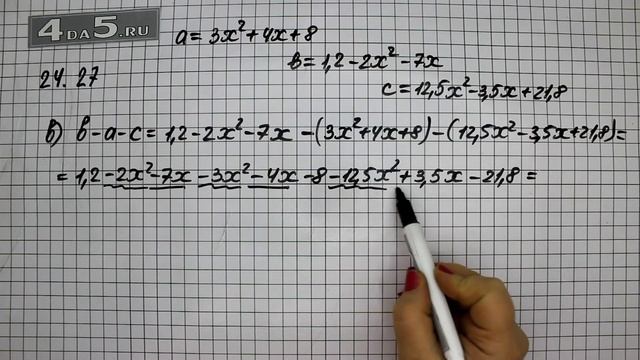 4 DA 5.RU
a = 3x² + 4x + 8
24. 27
b = 1,2 - 2x² - 7x
c = 12,5x² - 3,5x + 21,8
в) b - a - c = 1,2 - 2x² - 7x - (3x² + 4x + 8) - (12,5x² - 3,5x + 21,8) =
= 1,2 - 2x² - 7x - 3x² - 4x - 8 - 12,5x² + 3,5x - 21,8 =